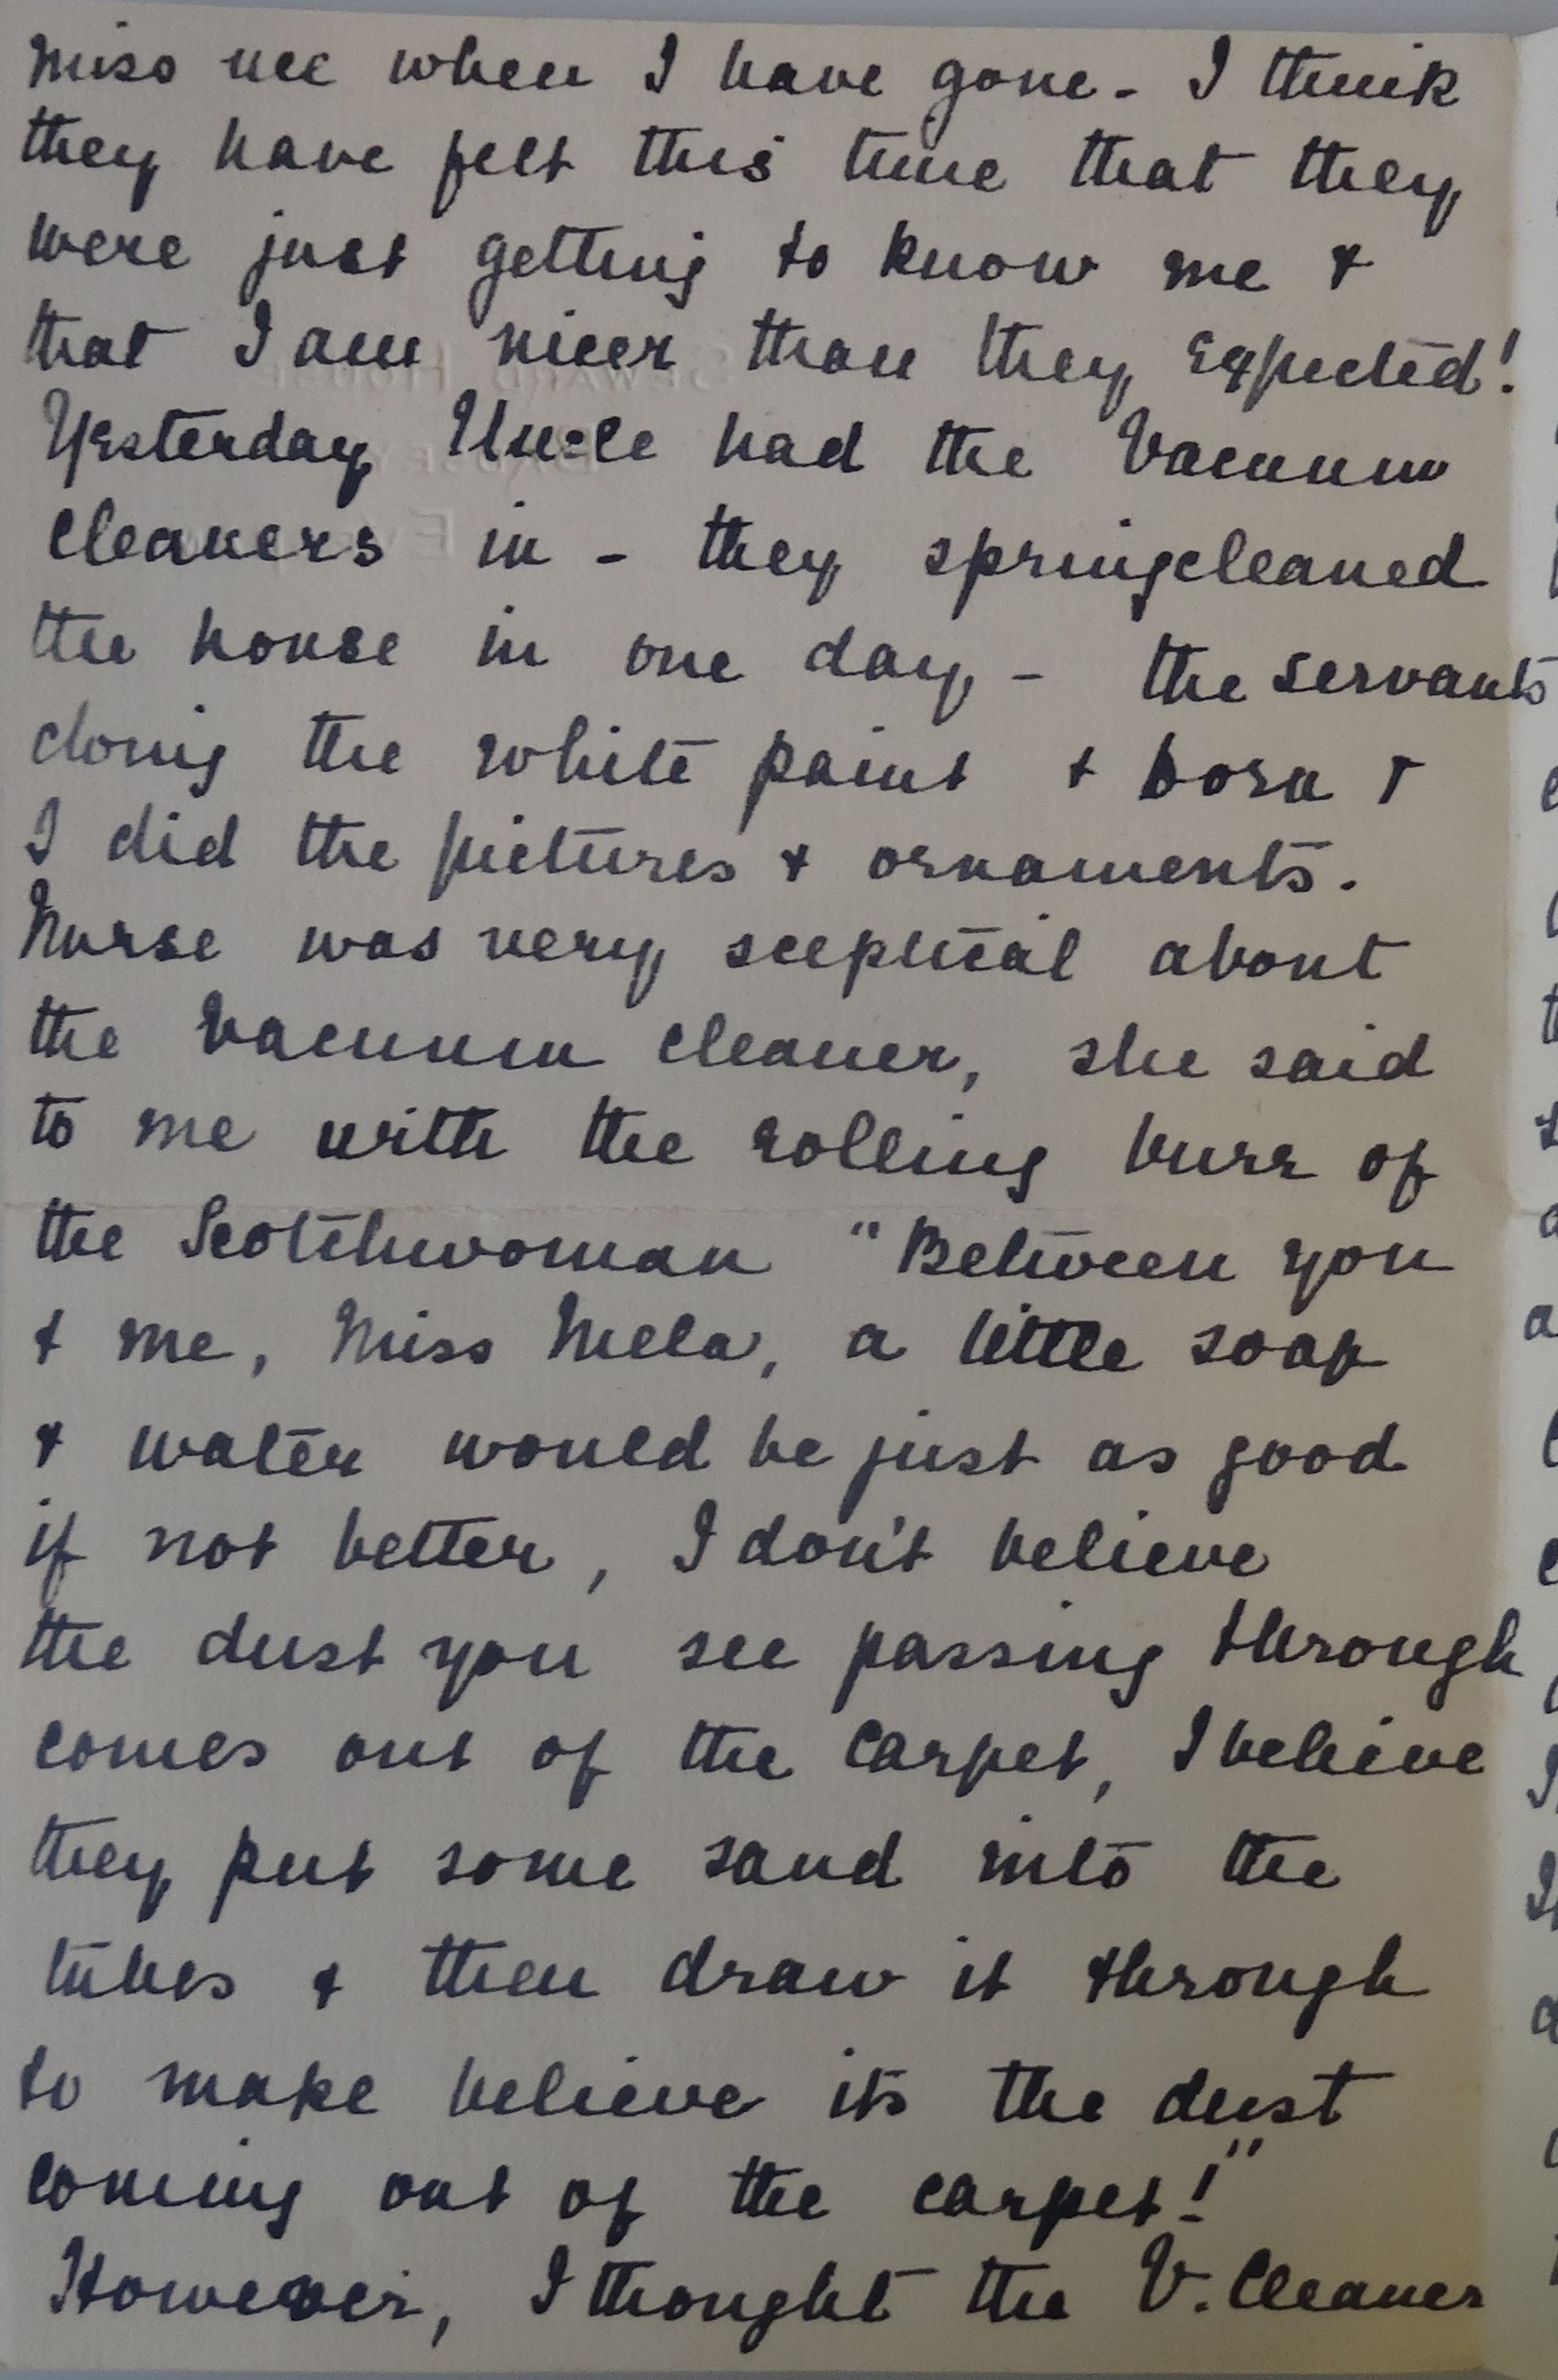 miss me when I have gone - I think
they have felt this time that they
were just getting to know me &
that I am nicer than they expected!
Yesterday Uncle had the Vacuum
cleaners in - they springcleaned
the house in one day, - the servants
doing the white paint & Dora &
I did the pictures & ornaments.
Nurse was very sceptical about
the Vacuum cleaner, she said
to me with the rolling burr of
the Scotchwoman "Between you
& me, Miss Mela, a little soap
& water would be just as good
if not better, I don't believe
the dust you see passing through
comes out of the carpet, I believe
they put some sand into the
tubes & then draw it through
to make believe its the dust
coming out of the carpet!"
However, I thought the V. Cleaner